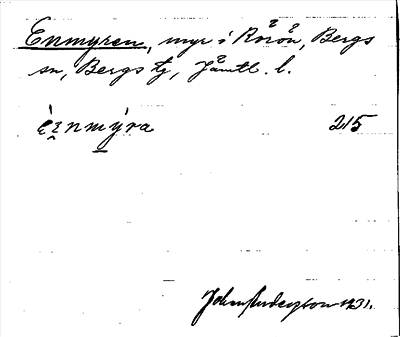 Enmyren, myr i Rörön, Bergs
sn, Bergs tg, Jämtl. l.
è̱nmýra 215
John Anderson 1931.